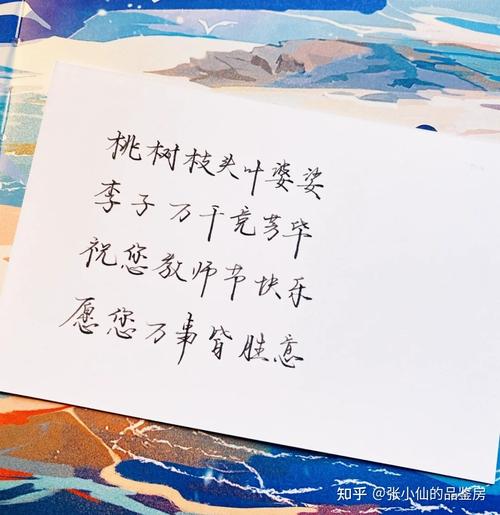 桃树枝头叶婆娑
李子万千竞芳华
祝您教师节快乐
愿您万事皆胜意
知乎 @张小仙的品鉴房